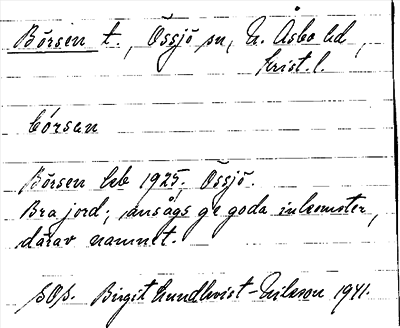 Börsen t., Össjö sn, N. Åsbo hd,
Krist. l.
börsen
Börsen hb 1925. Össjö.
Bra jord; ansågs ge goda inkomster,
därav namnet.
SOS. Birgit Lundkvist-Nilsson 1941.